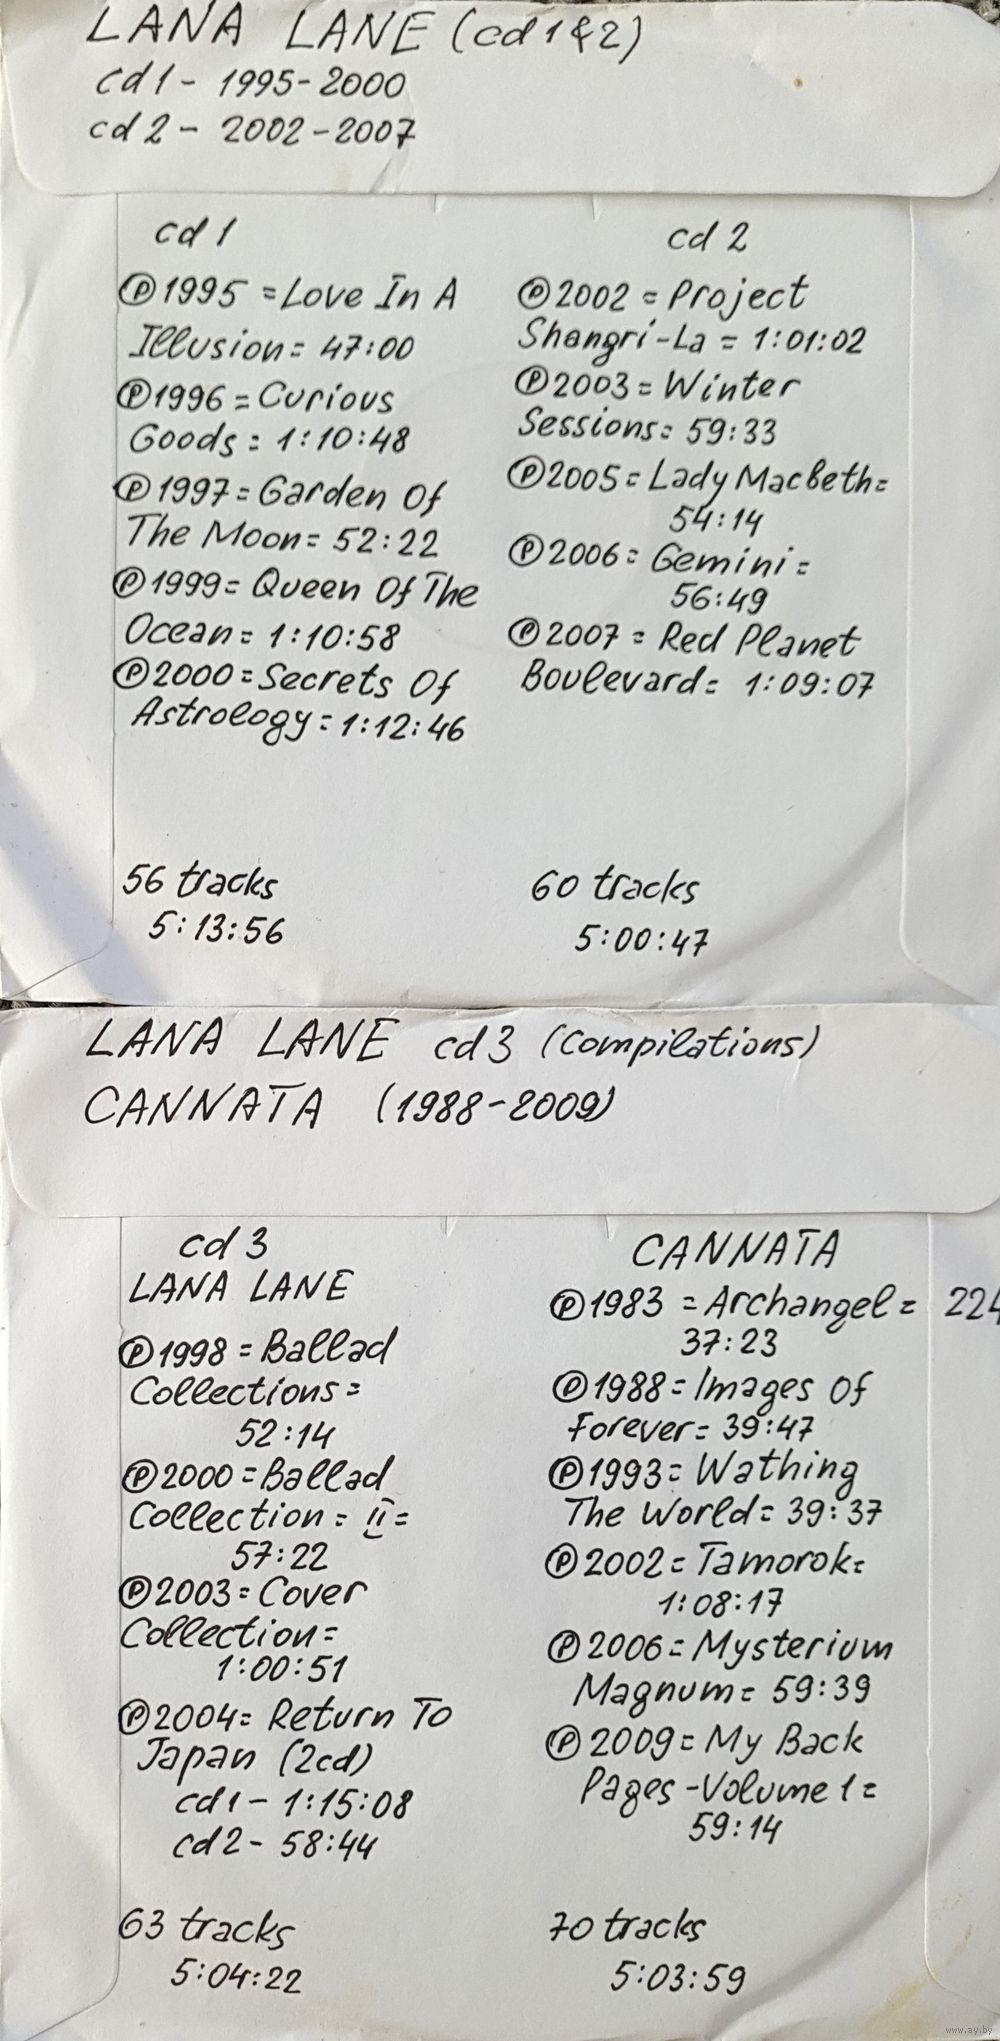 LANA LANE (cd 1 & 2)
cd 1 - 1995-2000
cd 2 - 2002-2007
cd 1
Ⓟ1995 = Love In A
Illusion = 47:00
Ⓟ1996 = Curious
Goods = 1:10:48
Ⓟ1997 = Garden Of
The Moon = 52:22
Ⓟ1999 = Queen Of The
Ocean = 1:10:58
Ⓟ2000 = Secrets Of
Astrology = 1:12:46
56 tracks
5:13:56
cd 2
Ⓟ2002 = Project
Shangri-La = 1:01:02
Ⓟ2003 = Winter
Sessions = 59:33
Ⓟ2005 = Lady Macbeth =
54:14
Ⓟ2006 = Gemini =
56:49
Ⓟ2007 = Red Planet
Boulevard = 1:09:07
60 tracks
5:00:47
LANA LANE cd 3 (Compilations)
CANNATA (1988-2009)
cd 3
LANA LANE
Ⓟ1998 = Ballad
Collections =
52:14
Ⓟ2000 = Ballad
Collection = II =
57:22
Ⓟ2003 = Cover
Collection =
1:00:51
Ⓟ2004 = Return To
Japan (2cd)
cd 1 - 1:15:08
cd 2 - 58:44
63 tracks
5:04:22
CANNATA
Ⓟ1983 = Archangel = 224
37:23
Ⓟ1988 = Images Of
Forever = 39:47
Ⓟ1993 = Wathing
The World = 39:37
Ⓟ2002 = Tamorok =
1:08:17
Ⓟ2006 = Mysterium
Magnum = 59:39
Ⓟ2009 = My Back
Pages - Volume 1 =
59:14
70 tracks
5:03:59
www.ay.by